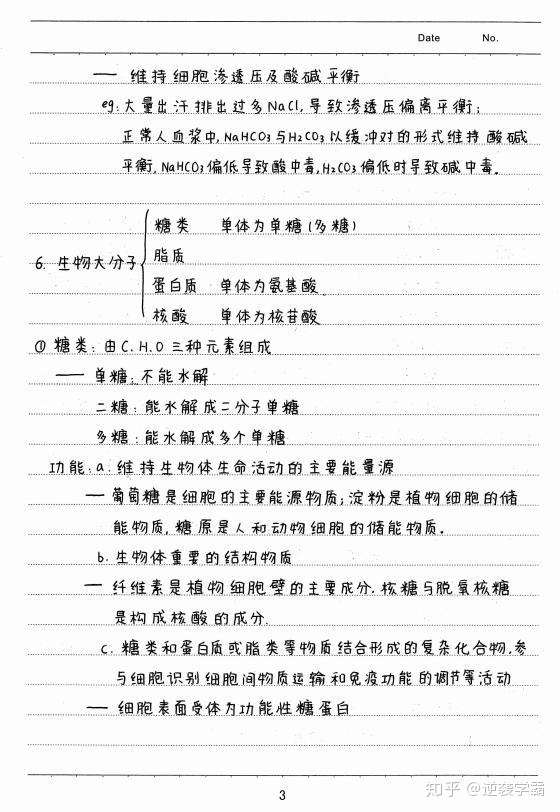 Date No.
— 维持细胞渗透压及酸碱平衡
eg:大量出汗排出过多NaCl,导致渗透压偏离平衡;
正常人血浆中,NaHCO3与H2CO3以缓冲对的形式维持酸碱
平衡,NaHCO3偏低导致酸中毒,H2CO3偏低时导致碱中毒。
糖类 单体为单糖(多糖)
脂质
6. 生物大分子
蛋白质 单体为氨基酸
核酸 单体为核苷酸
① 糖类:由C.H.O三种元素组成
— 单糖:不能水解
二糖:能水解成二分子单糖
多糖:能水解成多个单糖
功能:a.维持生物体生命活动的主要能量源
— 葡萄糖是细胞的主要能源物质;淀粉是植物细胞的储
能物质,糖原是人和动物细胞的储能物质.
b.生物体重要的结构物质
— 纤维素是植物细胞壁的主要成分.核糖与脱氧核糖
是构成核酸的成分.
c.糖类和蛋白质或脂类等物质结合形成的复杂化合物.参
与细胞识别细胞间物质运输和免疫功能的调节等活动
— 细胞表面受体为功能性糖蛋白
3
知乎 @逆袭学霸